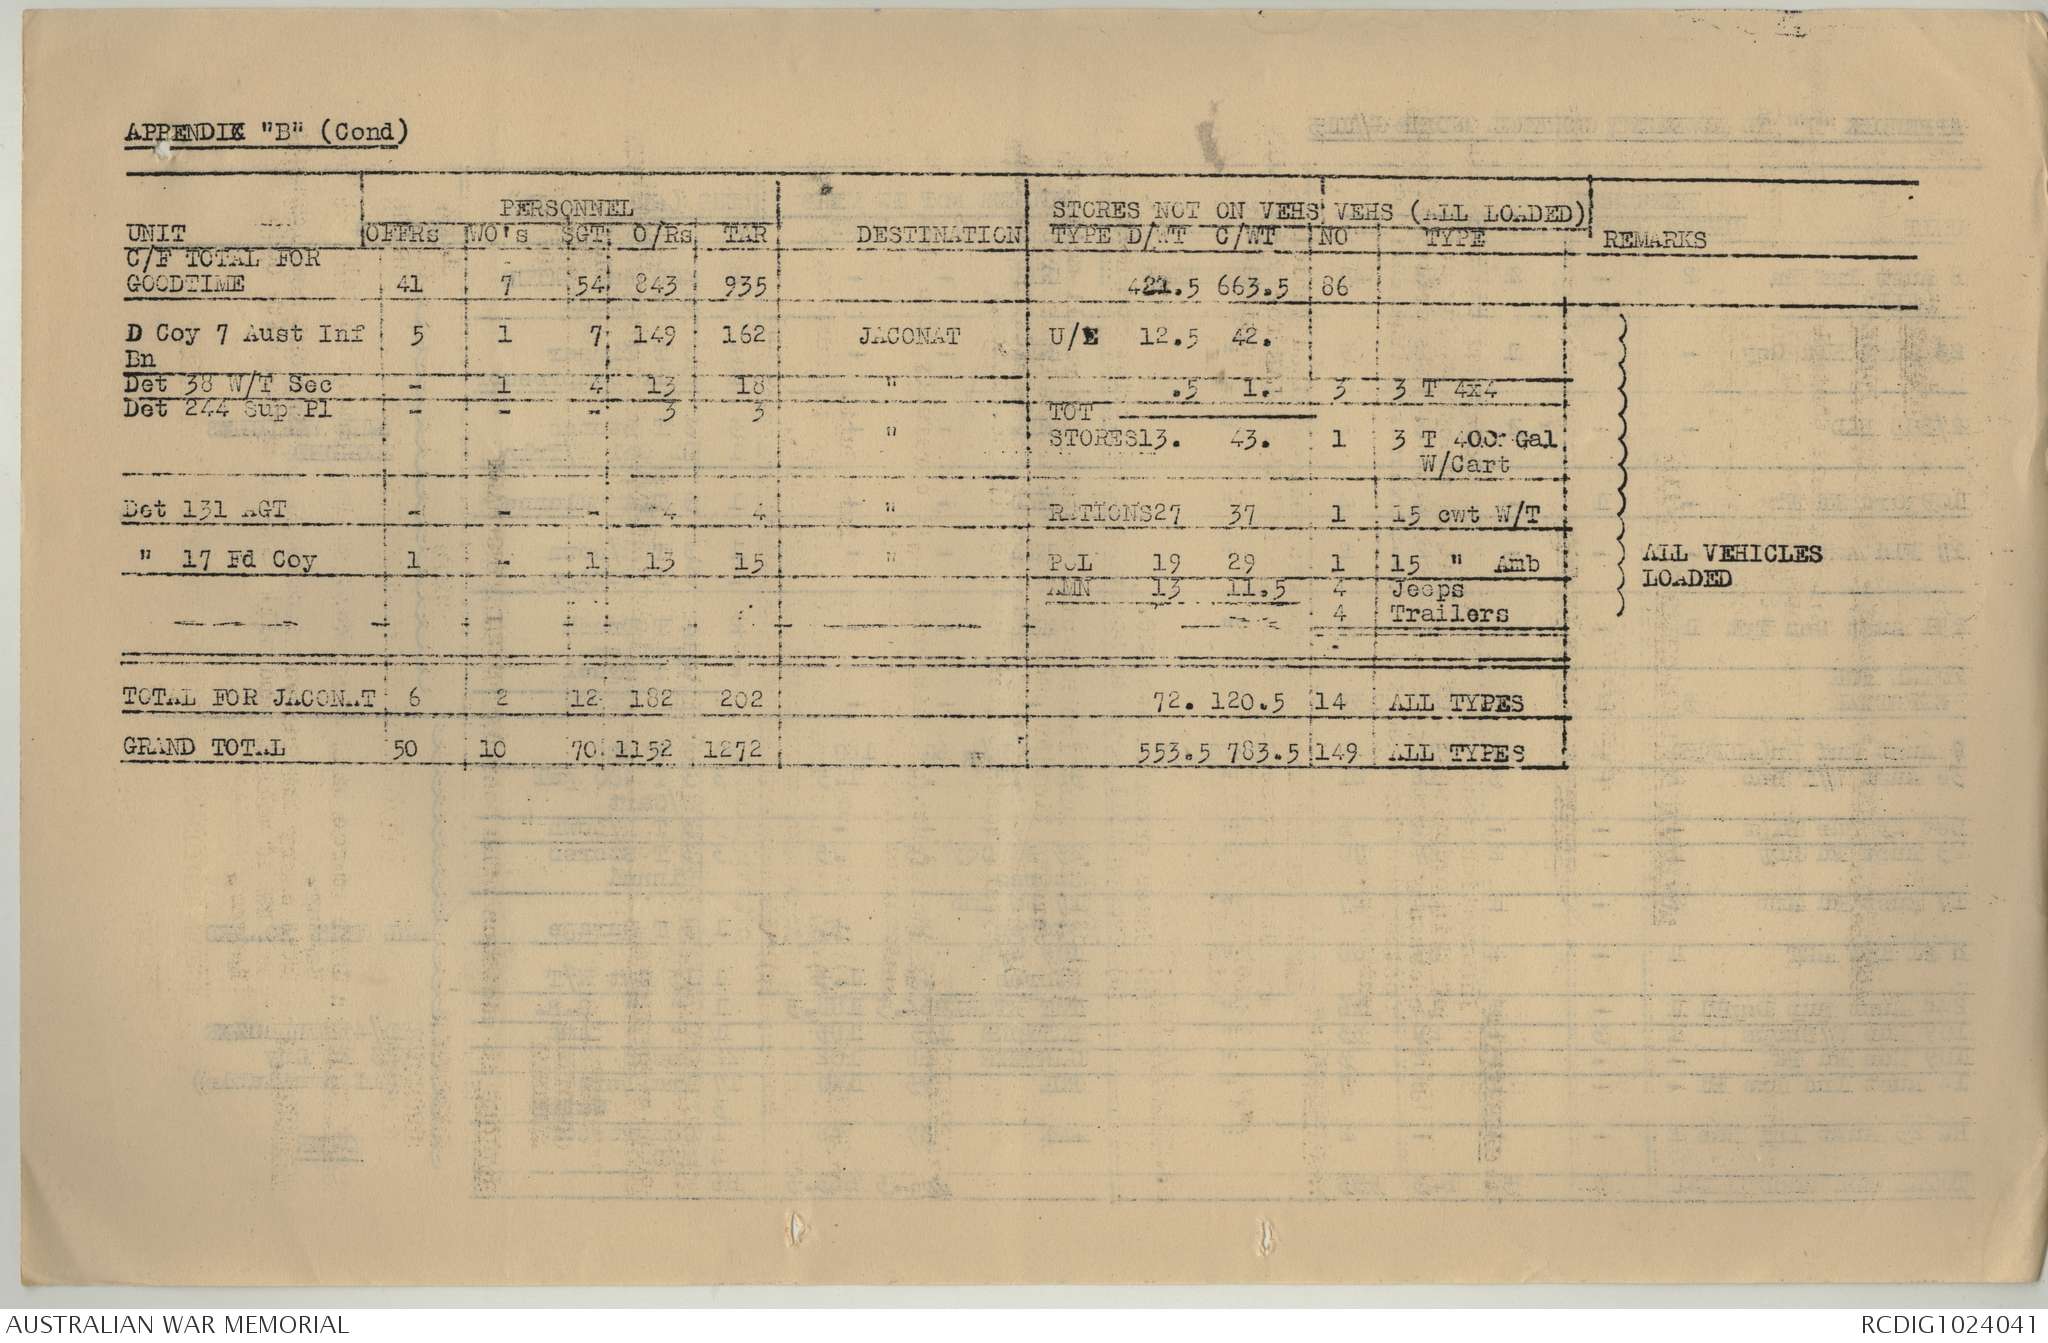 APPENDIX "B" (Cond)
PERSONNEL STORES NOT ON VEHS VEHS (ALL LOADED)
UNIT OFFRs WO's SGT O/Rs TAR DESTINATION TYPE D/WT C/WT NO TYPE REMARKS
C/F TOTAL FOR
GOODTIME 41 7 54 843 935 421.5 663.5 86
D Coy 7 Aust Inf 5 1 7 149 162 JACONAT U/E 12.5 42.
Bn
Det 38 W/T Sec - 1 4 13 18 " .5 1. 3 3 T 4x4
Det 244 Sup Pl - - - 3 3
TOT
" STORES13. 43. 1 3 T 400 Gal
W/Cart
Det 131 AGT - - - 4 4 " RATIONS27 37 1 15 cwt W/T
" 17 Fd Coy 1 - 1 13 15 " POL 19 29 1 15 " Amb
ALL VEHICLES
LOADED
AMN 13 11.5 4 Jeeps
4 Trailers
TOTAL FOR JACONAT 6 2 12 182 202 72. 120.5 14 ALL TYPES
GRAND TOTAL 50 10 70 1152 1272 553.5 783.5 149 ALL TYPES
AUSTRALIAN WAR MEMORIAL RCDIG1024041